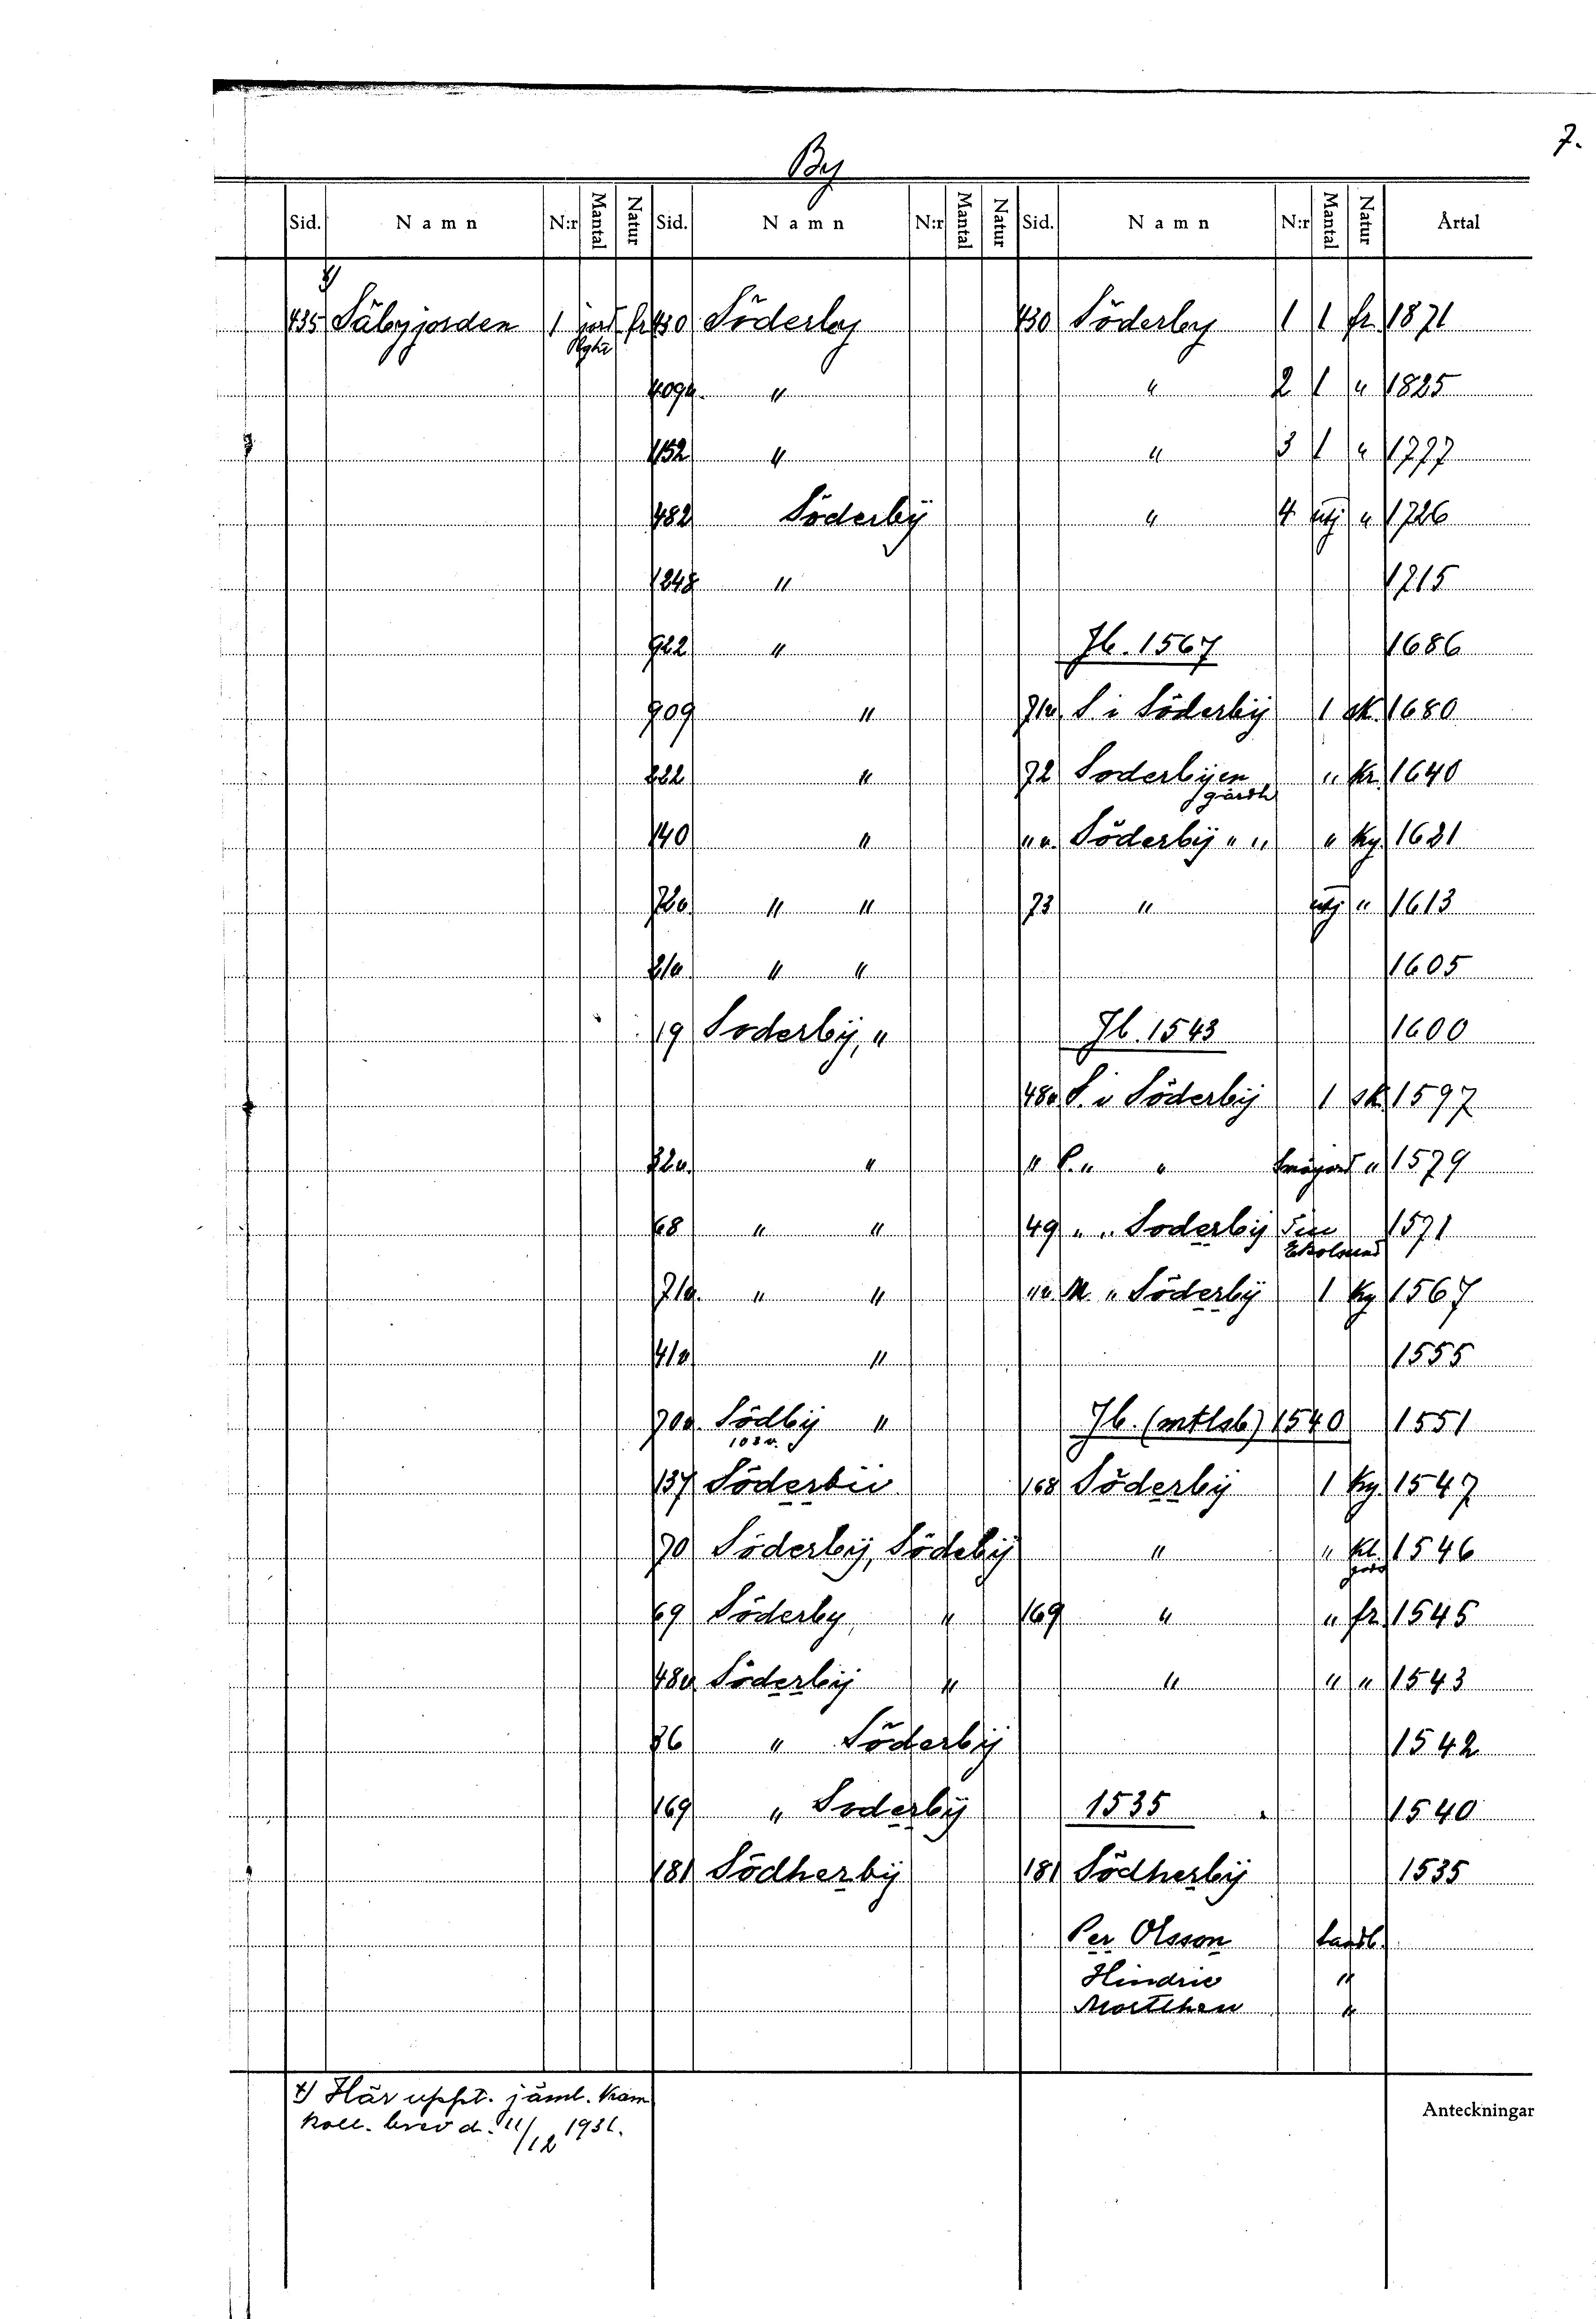 7.
By
Sid. Namn N:r Mantal Natur Sid. Namn N:r Mantal Natur Sid. Namn N:r Mantal Natur Årtal
x)
435 Säbyjorden 1 jord fr 430 Söderby 430 Söderby 1 1 fr. 1871
lght
409v. " " 2 1 " 1825
1152 " " 3 1 " 1777
482 Söderbÿ " 4 utj " 1726
1248 " 1715
922 " Jb. 1567 1686
909 " 71v. S. i Söderbÿ 1 sk. 1680
222 " 72 Soderbÿen " kr. 1640
gårdh
140 " " v. Söderbÿ " " " Ky. 1621
72v. " " 73 " utj. " 1613
21v. " " 1605
19 Soderbÿ, " Jb. 1543 1600
48v S. i Söderbÿ 1 sk 1597
32v. " " P. " " småjord " 1579
68 " " 49 " " Soderbÿ Till 1571
Ekolsund
71v. " " " v. M. " Söderbÿ 1 Ky 1567
41v " 1555
70v. Södbÿ " Jb. (mtlsb) 1540 1551
103v.
137 Söderbii 168 Söderbÿ 1 Ky. 1547
70 Söderbÿ, Södebÿ " " Kl. 1546
jord
69 Söderby, " 169 " " fr. 1545
48v Söderbÿ " " " " 1543
36 " Söderbÿ 1542
169 " Soderbÿ 1535 1540
181 Södherbÿ 181 Södherbÿ 1535
Per Olsson landb.
Hindric "
Mortthen "
x) Här uppt. jäml. Kam
koll. brev d. 11/12 1931.
Anteckningar